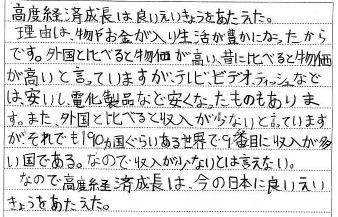 高度経済成長は良いえいきょうをあたえた。
理由は、物やお金が入り生活が豊かになったから
です。外国と比べると物価が高い、昔に比べると物価
が高いと言っていますが、テレビ、ビデオ、ティッシュなど
は、安いし、電化製品など安くなったものもありま
す。また、外国と比べると収入が少ないと言っています
が、それでも190カ国ぐらいある世界で9番目に収入が多
い国である。なので収入が少ないとは言えない。
なので高度経済成長は、今の日本に良いえい
きょうをあたえた。